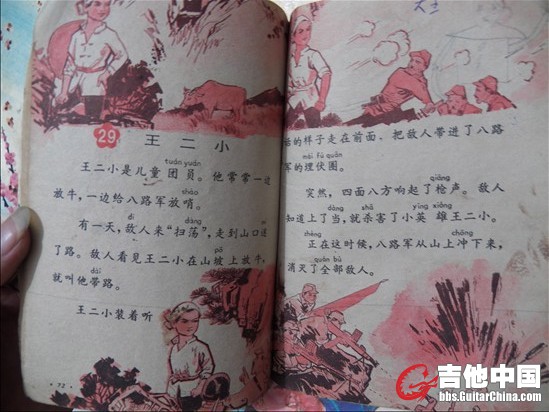 29 王二小
tuán yuán
王二小是儿童团员。他常常一边
shào
放牛，一边给八路军放哨。
dí dàng
有一天，敌人来“扫荡”，走到山口迷
pō
了路。敌人看见王二小在山坡上放牛，
dài
就叫他带路。
王二小装着听
72
大主
话的样子走在前面，把敌人带进了八路
mái fú quān
军的埋伏圈。
qiāng
突然，四面八方响起了枪声。敌人
dàng shā yīng xióng
知道上了当，就杀害了小英雄王二小。
chōng
正在这时候，八路军从山上冲下来，
quán bù
消灭了全部敌人。
吉他中国
bbs.GuitarChina.com